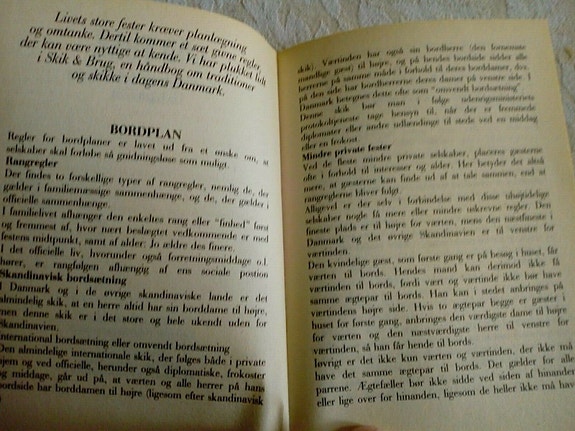 Livets store fester kræver planlægning
og omtanke. Dertil kommer et sæt givne regler,
der kan være nyttige at kende. Vi har plukket lidt
i Skik & Brug, en håndbog om traditioner
og skikke i dagens Danmark.
BORDPLAN
Regler for bordplaner er lavet ud fra et ønske om, at
selskaber skal forløbe så gnidningsløse som muligt.
Rangregler
Der findes to forskellige typer af rangregler, nemlig de, der
gælder i familiemæssige sammenhænge, og de, der gælder i
officielle sammenhænge.
I familielivet afhænger den enkeltes rang eller "finhed" først
og fremmest af, hvor nært beslægtet vedkommende er med
festens midtpunkt, samt af alder: Jo ældre des finere.
I det officielle liv, hvorunder også forretningsmiddage o.l.
hører, er rangfølgen afhængig af ens sociale postion
Skandinavisk bordsætning
I Danmark og i de øvrige skandinaviske lande er det
almindelig skik, at en herre altid har sin borddame til højre,
men denne skik er i det store og hele ukendt uden for
Skandinavien.
International bordsætning eller omvendt bordsætning
Den almindelige internationale skik, der følges både i private
hjem og ved officielle, herunder også diplomatiske, frokoster
og middage, går ud på, at værten og alle herrer på hans
bordside har borddamen til højre (ligesom efter skandinavisk
skik). Værtinden har også sin bordherre (den fornemste
mandlige gæst) til højre, og på hendes bordside sidder alle
herrerne på samme måde i forhold til deres borddamer, dvs.
på den side har bordherrerne deres damer på venstre side. I
Danmark betegnes dette ofte som "omvendt bordsætning".
Denne skik bør man i følge udenrigsministeriets
protokoltjeneste tage hensyn til, når der er fremmede
diplomater eller andre udlændinge til stede ved en middag
eller en frokost.
Mindre private fester
Ved de fleste mindre private selskaber, placeres gæsterne
ofte i forhold til interesser og alder. Her betyder det altså
mere, at gæsterne kan finde ud af at tale sammen, end at
rangreglerne bliver fulgt.
Alligevel er der selv i forbindelse med disse uhøjtidelige
selskaber nogle få mere eller mindre uskrevne regler. Den
fineste plads er til højre for værten, mens den næstfineste i
Danmark og det øvrige Skandinavien er til venstre for
værtinden.
Den kvindelige gæst, som første gang er på besøg i huset, får
værten til bords. Hendes mand kan derimod ikke få
værtinden til bords, fordi vært og værtinde ikke bør have
samme ægtepar til bords. Han kan i stedet anbringes på
værtindens højre side. Hvis to ægtepar begge er gæster i
huset for første gang, anbringes den værdigste dame til højre
for værten og den næstværdigste herre til venstre for
værtinden, så han får hende til bords.
Iøvrigt er det ikke kun værten og værtinden, der ikke må
have det samme ægtepar til bords. Det gælder for alle
parrene. Ægtefæller bør ikke sidde ved siden af hinanden
eller lige over for hinanden, ligesom de heller ikke må have